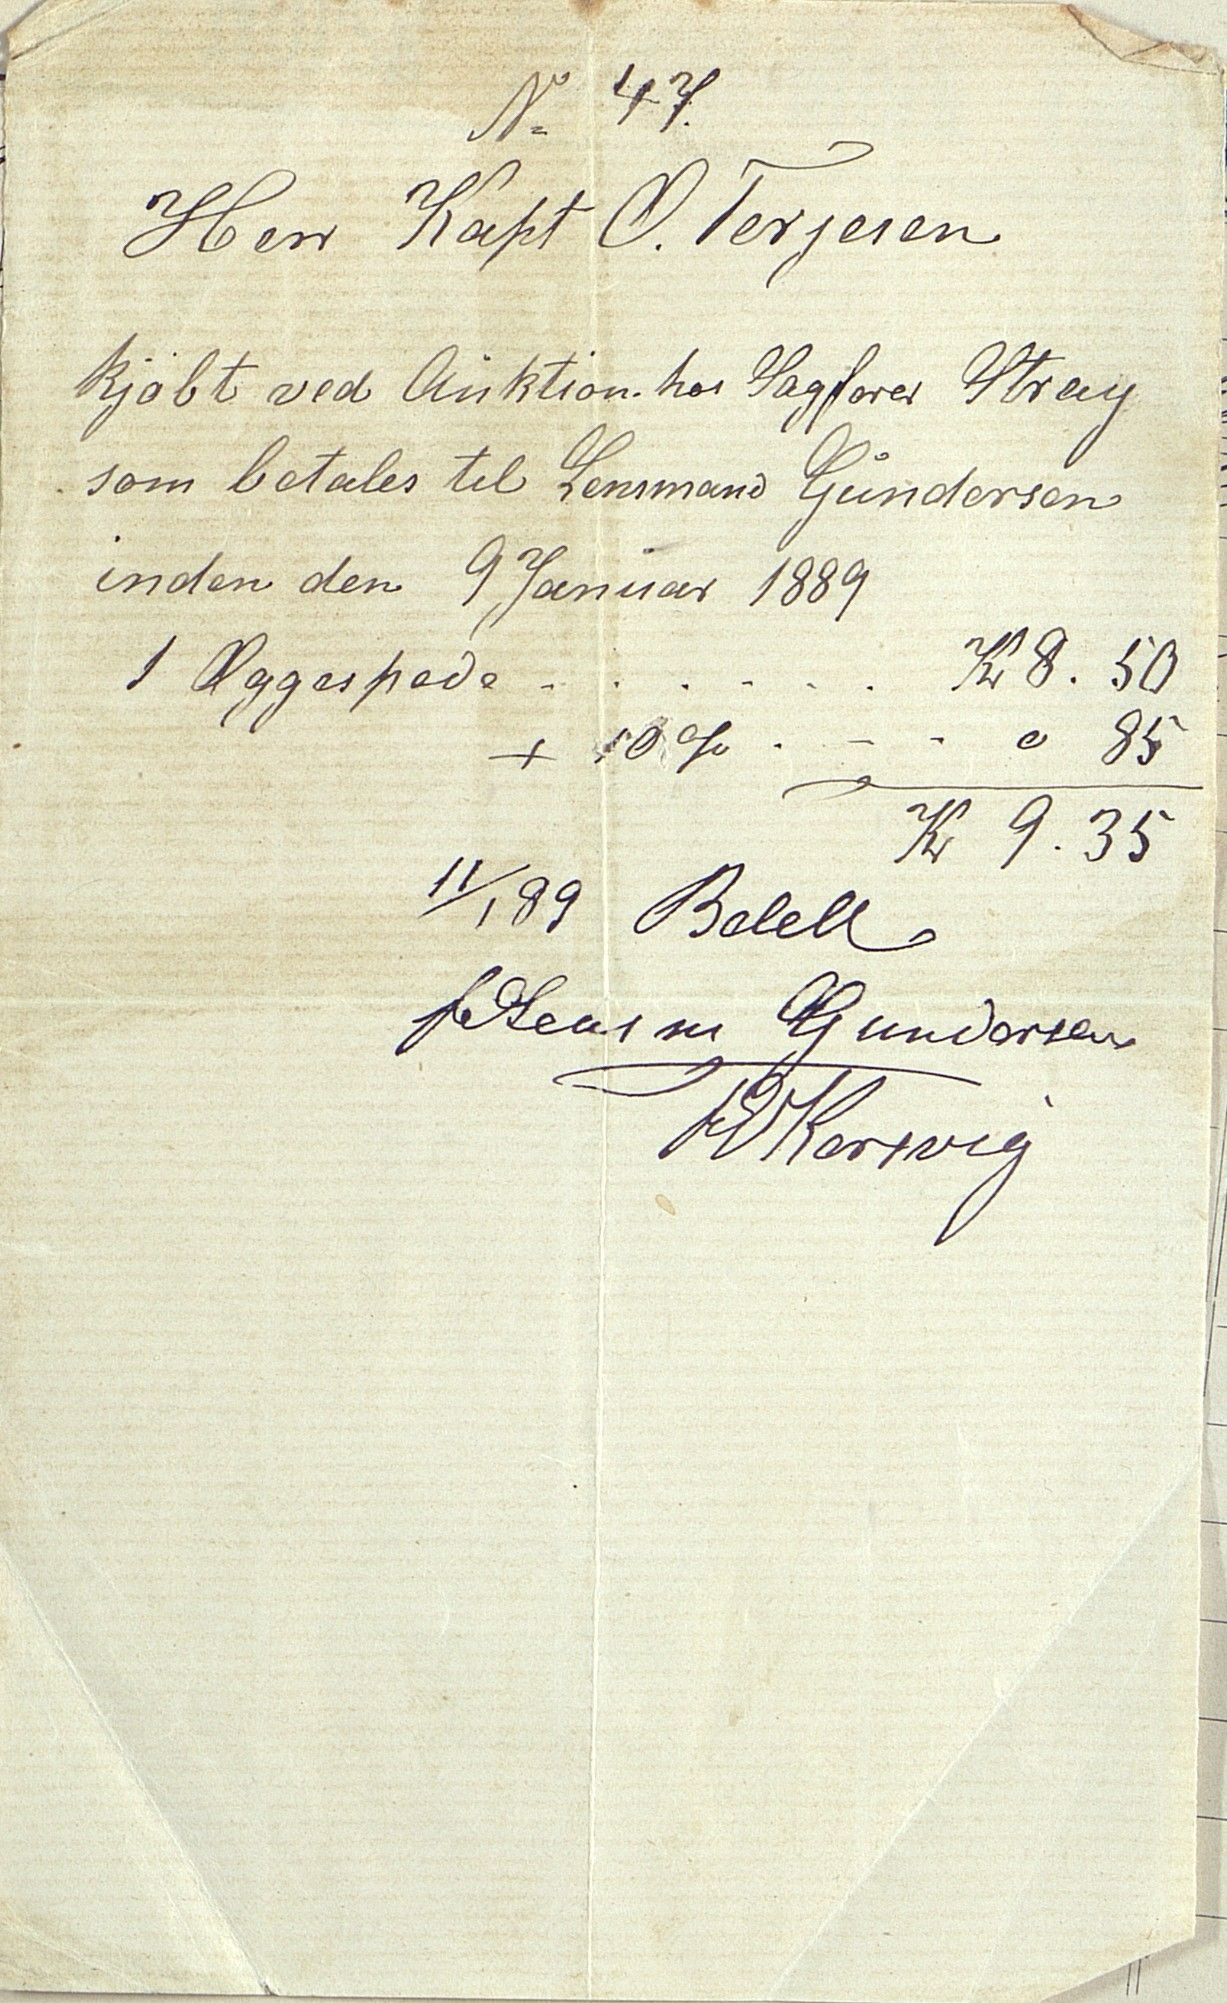 No 47.
Herr Kapt O. Terjesen
kjøbt ved Auktion hos Sagfører Stray
som betales til Lensmand Gundersen
inden den 9 Januar 1889
1 Æggespade - . . . - . . Kr 8. 50
+ 10 % . - - " 85
Kr 9. 35
11/1 89
Gundersen